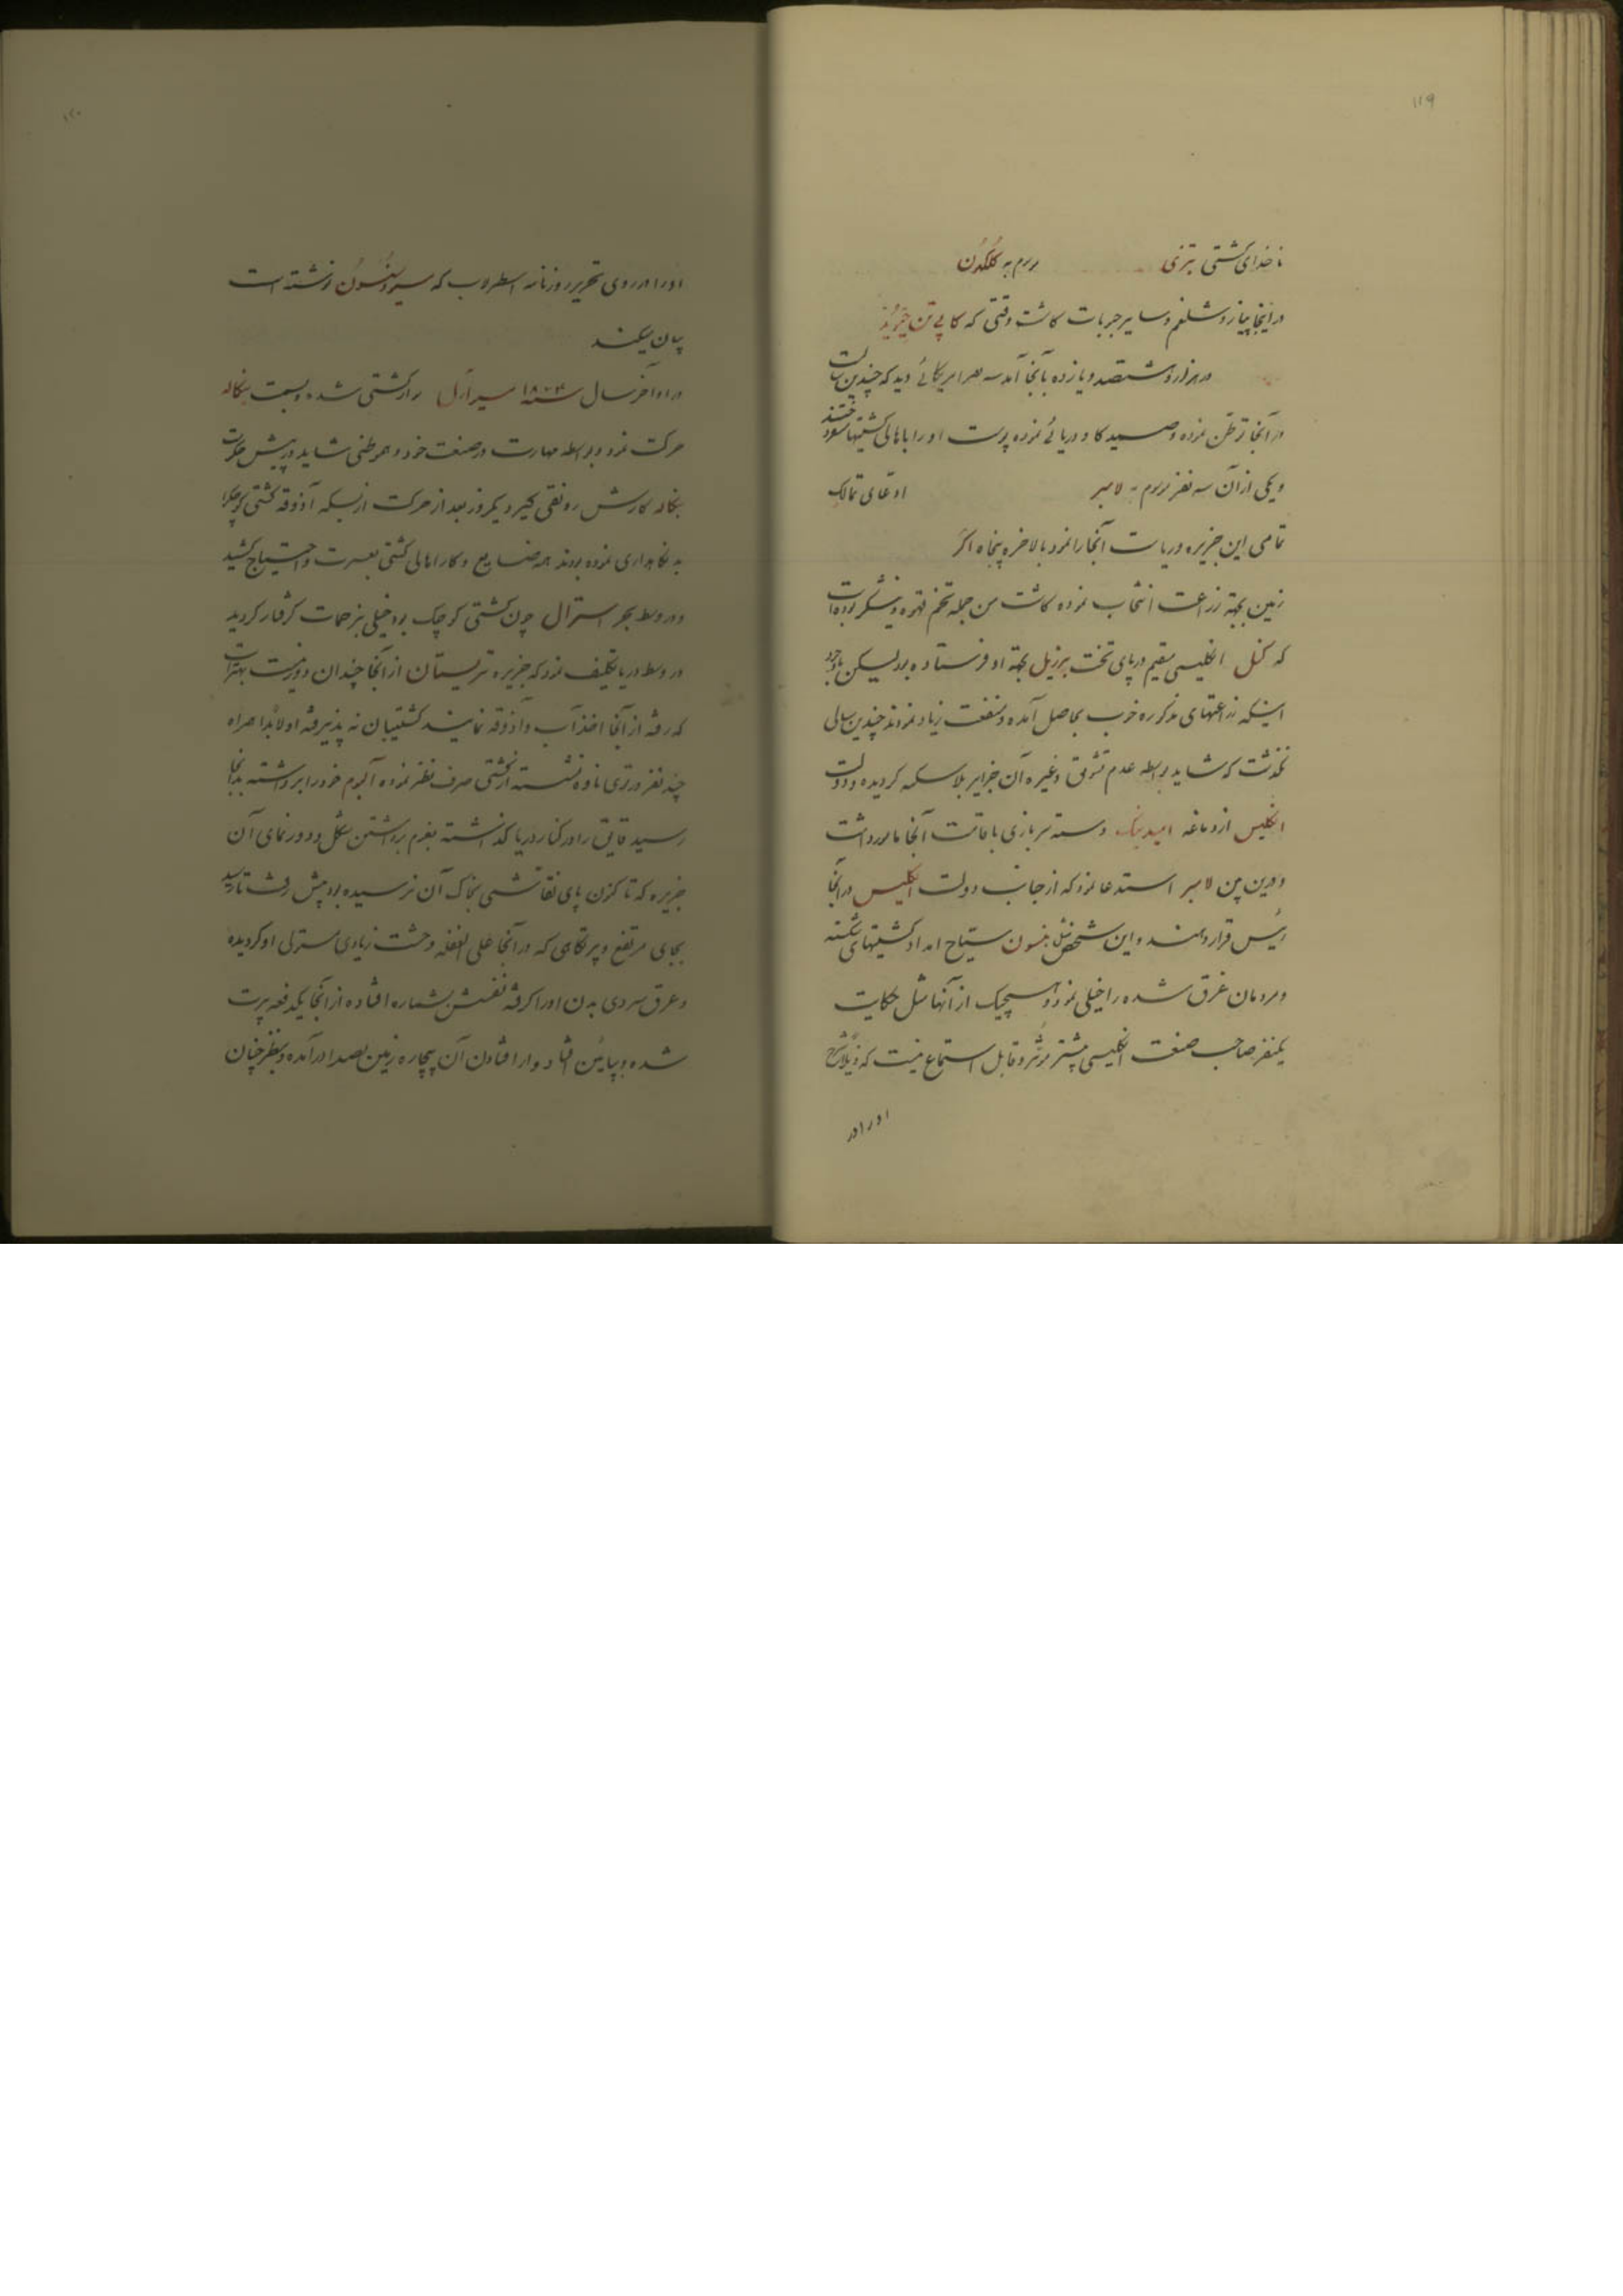 ۱۱۹
ناخدای کشتی تبری موسوم به کلکهن
در اینجا پیاز و شلغم و سایر حبوبات کاشت وقتی که کاپی تن
در هزار و هشتصد و یازده بآنجا آمد سه نفر امریکائی دید که چندین سالست
در آنجا توطن نموده و صید کاو دریائی نموده پوست او را باهالی کشتیها میفروختند
و یکی از آن سه نفر موسوم به لامبر ادعای تمالک
تمامی این جزیره و ریاست آنجا را نمود بالاخره پنجاه اکر
زمین بجهته زراعت انتخاب نموده کاشت من جمله تخم قهوه و نیشکر بوده است
که کنل انگلیسی مقیم در پای تخت برزیل بجهته او فرستاده بود لیکن باوجود
اینکه زراعتهای مذکوره خوب بحاصل آمده و منفعت زیاد نمودند چندین سالی
نگذشت که شاید بواسطه عدم تشوق و غیره آن جزایر بلاسکنه گردیده و دولت
انگلیس از دماغه امید نیک دسته سربازی باقامت آنجا مامور داشت
و درین بین لامبر استدعا نمود که از جانب دولت انگلیس در آنجا
رئیس قرار دهند و این شخص مثل بنسون سیاح امداد کشتیهای شکسته
و مردمان غرق شده را خیلی نمود و هیچیک از آنها مثل حکایت
یکنفر صاحب صنعت انگلیسی بیشتر مؤثر و قابل استماع نیست که ذیلا شرح
او را در
۱۲۰
او را از روی تحریر روزنامه اسطروب که سیر ونسون نوشته است
بیان میکند
در اواخر سال سنه ۱۸۰۳ سیر ارل سوار کشتی شده و بسمت بنگاله
حرکت نمود و بواسطه مهارت در صنعت خود و هم وطنی شاید در پیش حکومت
بنگاله کارش رونقی گیرد یکروز بعد از حرکت از بسکه آذوقه کشتی کوچک را
بد نگاهداری نموده بودند همه ضایع و کار اهالی کشتی بعسرت و احتیاج کشید
و در وسط بحر استرال چون کشتی کوچک بود خیلی بزحمات گرفتار گردید
در وسط دریا تکلیف نمود که جزیره تریستان از آنجا چندان دور نیست بهتر است
که رفته از آنجا اخذ آب و آذوقه نمایند کشتیبان نه پذیرفته او لابدا همراه
چند نفر در توی ناوه نشسته از کشتی صرف نظر نموده آلبوم خود را برداشته بدانجا
رسید قایق را در کنار دریا گذاشته بعزم برداشتن شکل و دورنمای آن
جزیره که تا کنون پای نقاشی بخاک آن نرسیده بود پیش رفت تا رسید
بجای مرتفع و پرتگاهی که در آنجا علی الغفله وحشت زیادی مستولی او گردیده
و عرق سردی بدن او را گرفته نفسش بشماره افتاده از آنجا یکدفعه پرت
شده و پایین افتاد و از افتادن آن بیچاره زمین بصدا درآمده و بنظر چنان